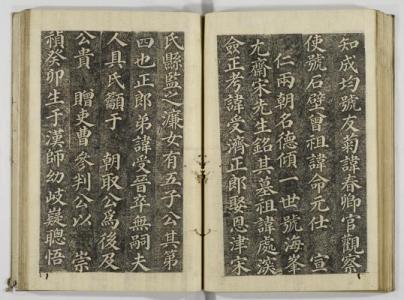 知成均號友菊諱春卿官觀察
使號石壁曾祖諱命元仕 宣
仁兩朝名德傾一世號海峯
尤齋宋先生銘其墓祖諱處深
僉正考諱受濟正郎娶恩津宋
氏縣監之濂女有五子公其第
四也正郎弟諱受晉卒無嗣夫
人具氏籲于 朝取公爲後及
公貴 贈吏曹參判公以 崇
禎癸卯生于漢師幼岐嶷聰悟